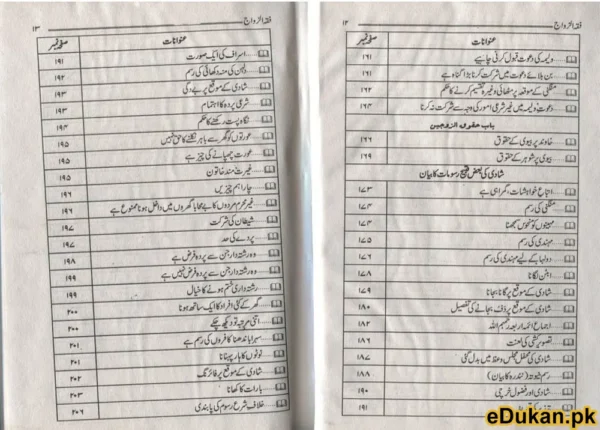 فقہ الزواج ۱۲
عنوانات صفحہ نمبر
ولیمہ کی دعوت قبول کرنی چاہیے ۱۶۱
بن بلائے دعوت میں شرکت کرنا بڑا گناہ ہے ۱۶۱
منگنی کے موقعہ پر مٹھائی وغیرہ تقسیم کرنے کا حکم ۱۶۲
دعوت ولیمہ میں غیر شرعی امور کی وجہ سے شرکت نہ کرنا ۱۶۴
باب حقوق الزوجین
خاوند پر بیوی کے حقوق ۱۶۶
بیوی پر شوہر کے حقوق ۱۶۹
شادی کی بعض قبیح رسومات کا بیان
اتباع خواہشات، گمراہی ہے ۱۷۳
منگنی کی رسم ۱۷۴
مہینوں کو منحوس سمجھنا ۱۷۴
مہندی کی رسم ۱۷۵
دولہا کے لیے مہندی کی رسم ۱۷۶
ابٹن لگانا ۱۷۸
شادی کے موقع پر گانا بجانا ۱۷۹
شادی کے موقع پر دف بجانے کی تفصیل ۱۸۰
اجماع ائمہ اربعہ رحمہم اللہ ۱۸۲
تصویر کشی کی لعنت ۱۸۶
شادی کی محفل مجلس وعظ میں بدل گئی ۱۸۷
رسم نیوتہ (نندرہ کا بیان) ۱۸۸
شادی اور فضول خرچی ۱۹۰
۱۹۱
فقہ الزواج ۱۳
عنوانات صفحہ نمبر
اسراف کی ایک صورت ۱۹۱
دلہن کی منہ دکھائی کی رسم ۱۹۲
شادی کے موقع پر بے پردگی ۱۹۳
شرعی پردہ کا اہتمام ۱۹۳
نگاہ پست رکھنے کا حکم ۱۹۴
عورتوں کو گھر سے باہر نکلنے کا حق نہیں ۱۹۵
عورت چھپانے کی چیز ہے ۱۹۵
غیرت مند خاتون ۱۹۵
چار اہم چیزیں ۱۹۶
غیر محرم مردوں کا بے محابا گھروں میں داخل ہونا ممنوع ہے ۱۹۶
شیطان کی شرکت ۱۹۷
پردے کی حد ۱۹۷
وہ رشتہ دار جن سے پردہ فرض ہے ۱۹۸
وہ رشتہ دار جن سے پردہ فرض نہیں ہے ۱۹۹
رشتہ داری ختم ہونے کا خیال ۱۹۹
گھر کے کئی افراد کا ایک ساتھ ہونا ۲۰۰
اتنی مرتبہ تو دیکھ چکے ۲۰۰
سہرا باندھنا کافروں کی رسم ہے ۲۰۱
نوٹوں کا ہار پہنانا ۲۰۱
شادی کے موقع پر فائرنگ ۲۰۲
بارات کا کھانا ۲۰۳
خلاف شرع رسوم کی پابندی ۲۰۶
eDukan.pk